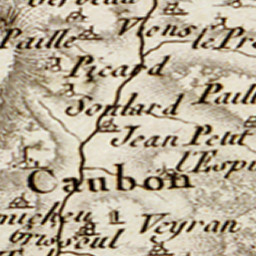 Paille
Vions
le Pre
Picard
Soulard
Paill
Jean Petit
l'Espi
Caubon
Veyran